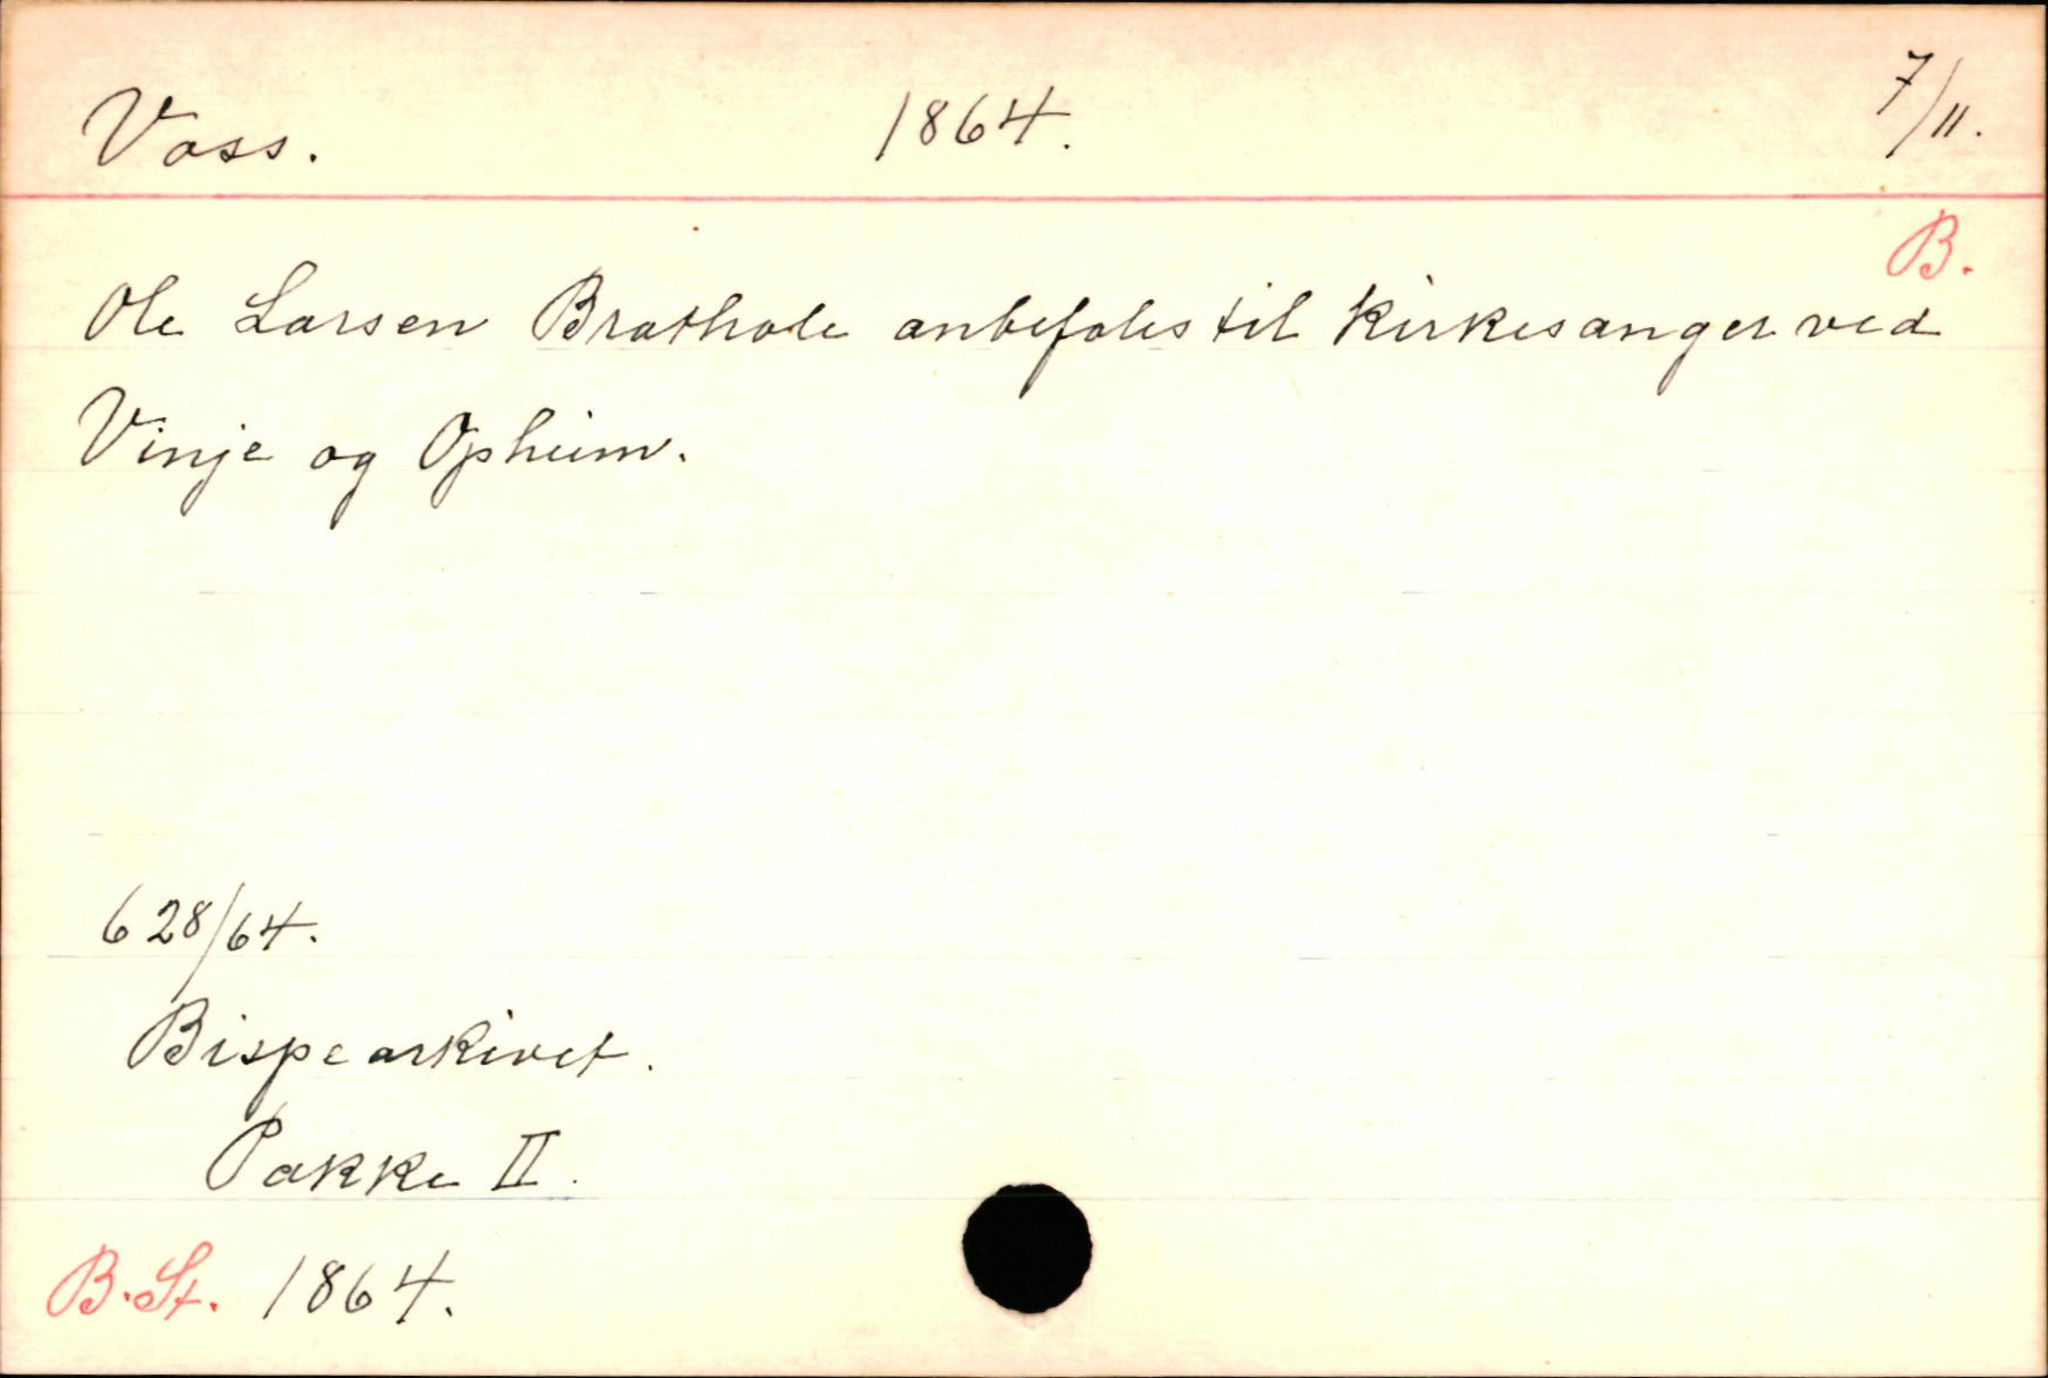 Voss. 1864. 7/11.
B.
Ole Larsen Brathole anbefales til kirkesanger ved
Vinje og Opheim.
628/64.
Bispearkivet.
Pakke II.
B. St. 1864.